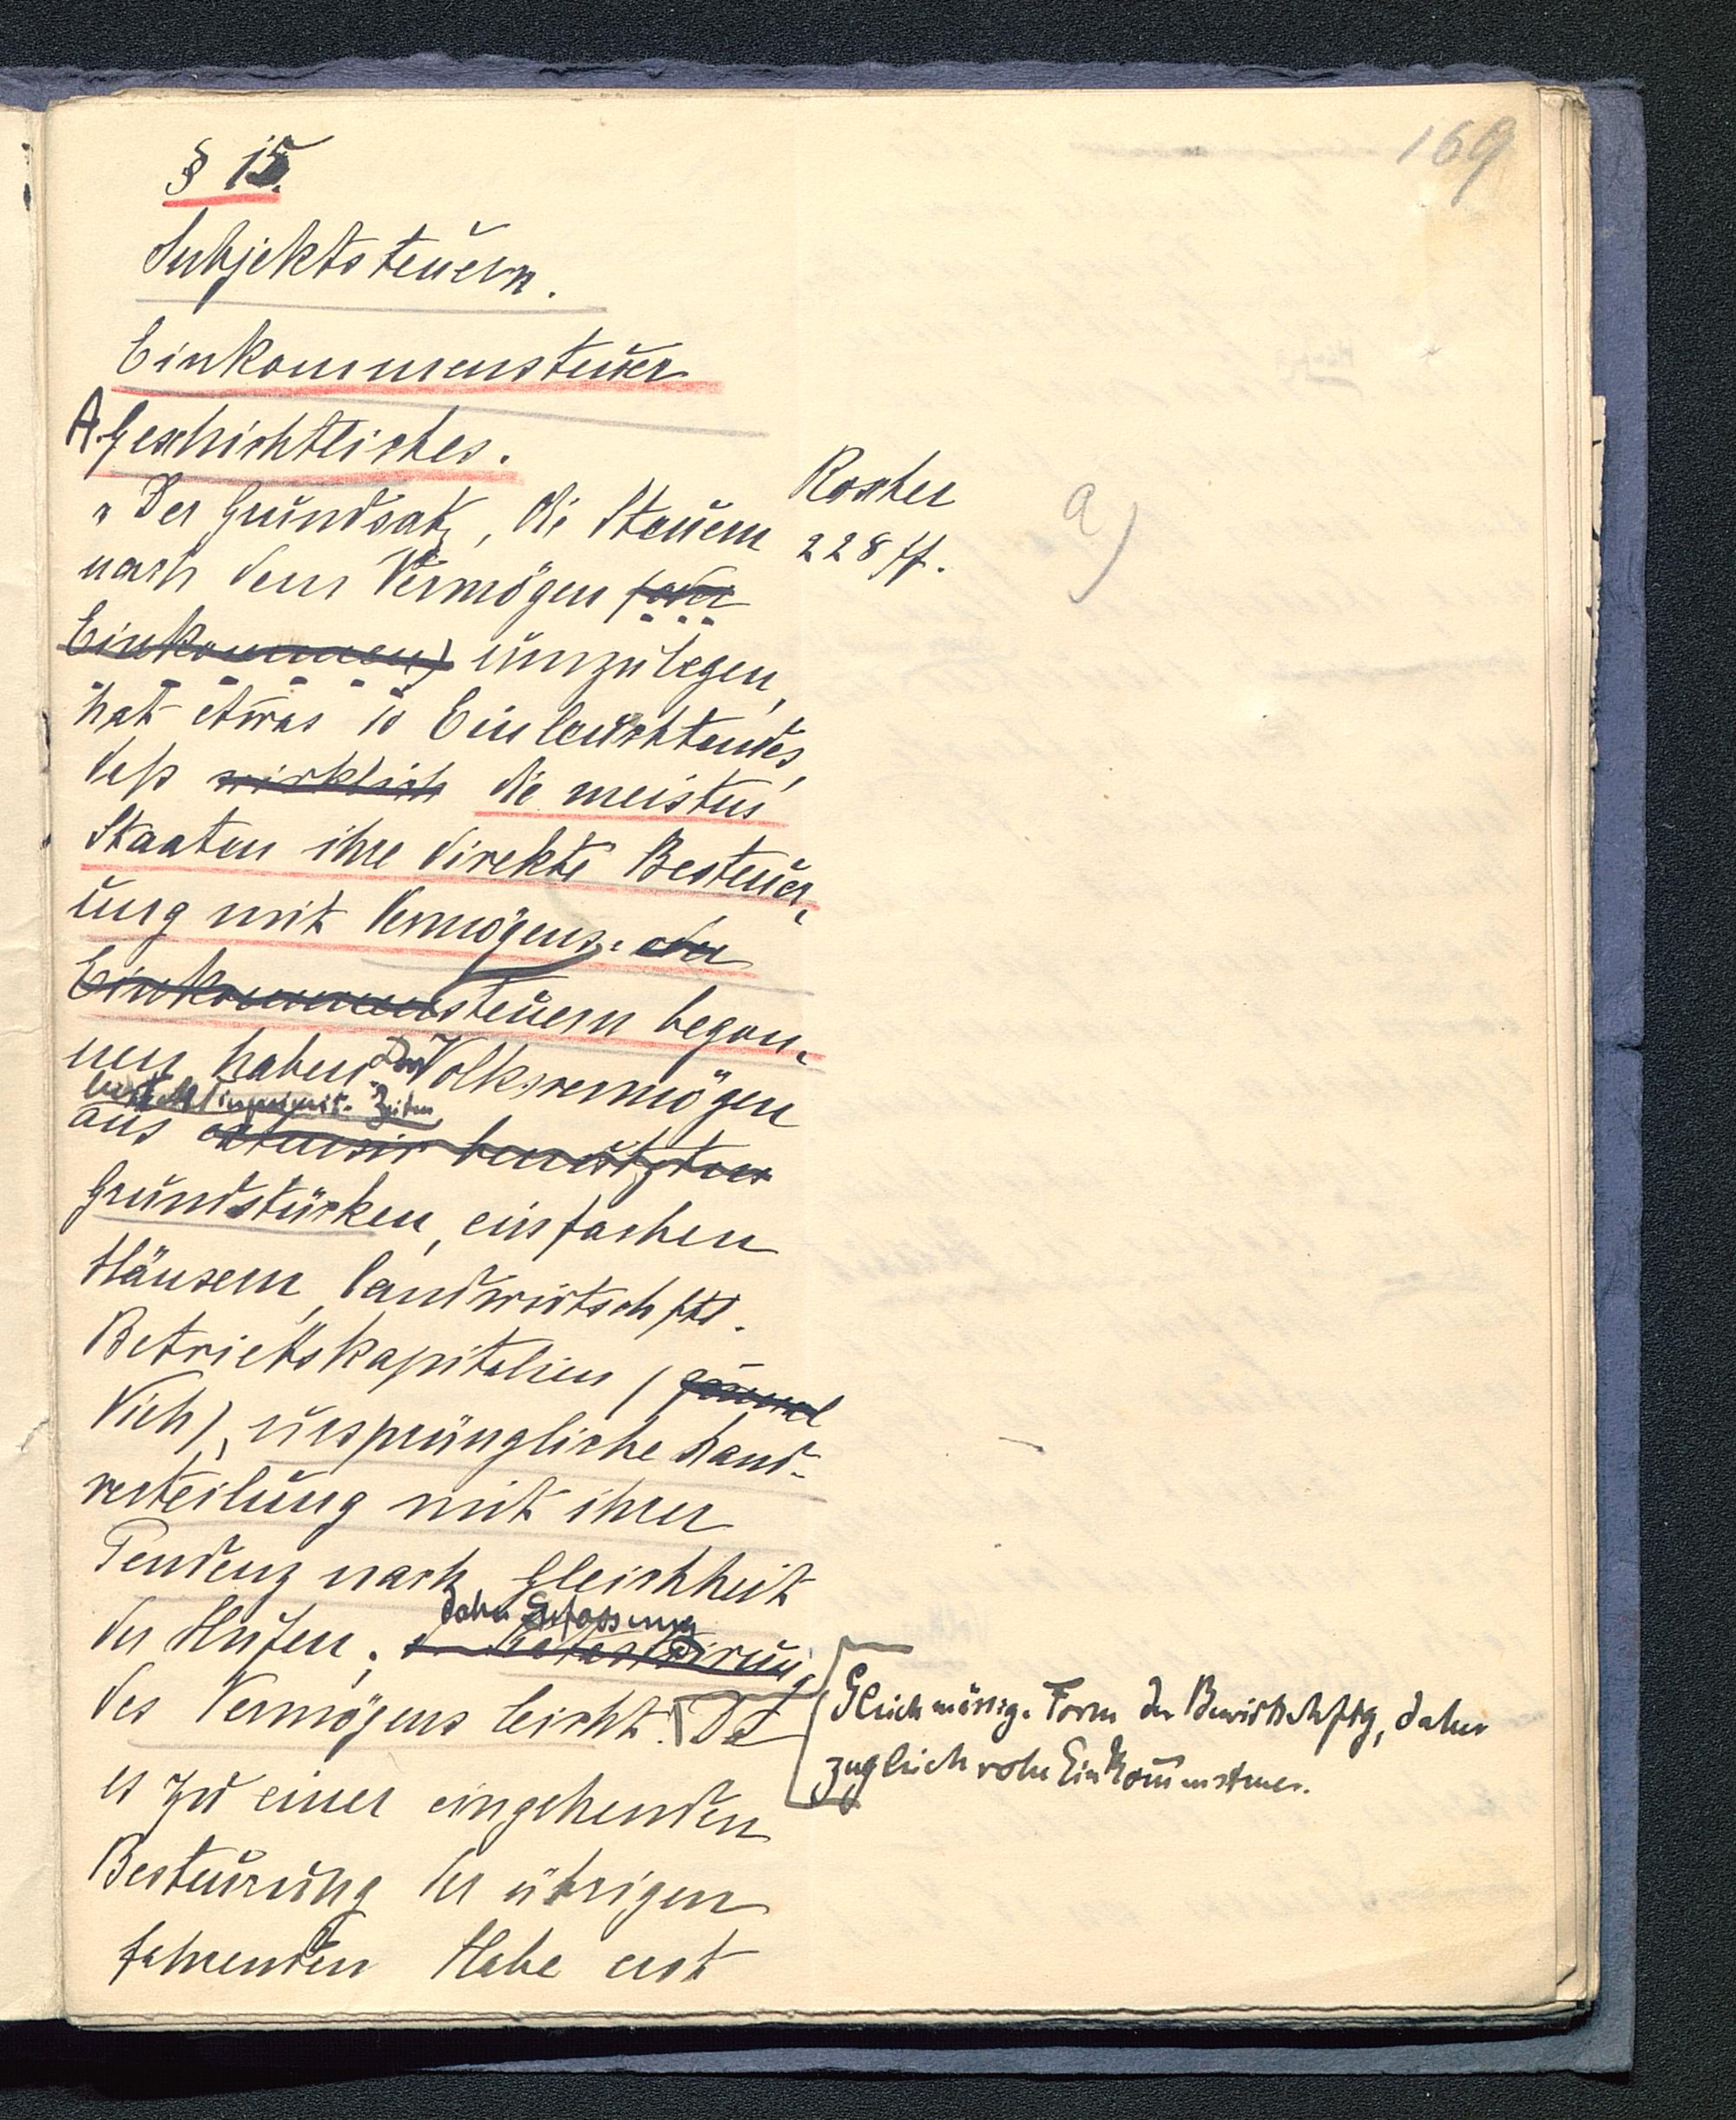 169
§ 15.
Subjektsteuern.
Einkommensteuer
A Geschichtliches.
„Der Grundsatz, die Steuern
nach dem Vermögen (oder
Einkommen) umzulegen,
hat etwas so Einleuchtendes,
daß wirklich die meisten
Staaten ihre direkte Besteuer-
ung mit Vermögens- oder
Einkommensteuern begon-
nen haben. Das Volksvermögen
besteht in primit. Zeiten
aus extensiv benutzten
Grundstücken, einfachen
Häusern, landwirtschftl.
Betriebskapitalien (
Vieh), ursprüngliche Land-
verteilung mit ihrer
Tendenz nach Gleichheit
daher Erfassung
der Hufen; d. Katastrirung
des Vermögens leicht. Da
es zu einer eingehenden
Besteurung der übrigen
fahrenden Habe erst
Roscher
228 ff.
a)
Gleichmässig. Form der Bewirtschftg, daher
zugleich rohe Einkommenstuer.